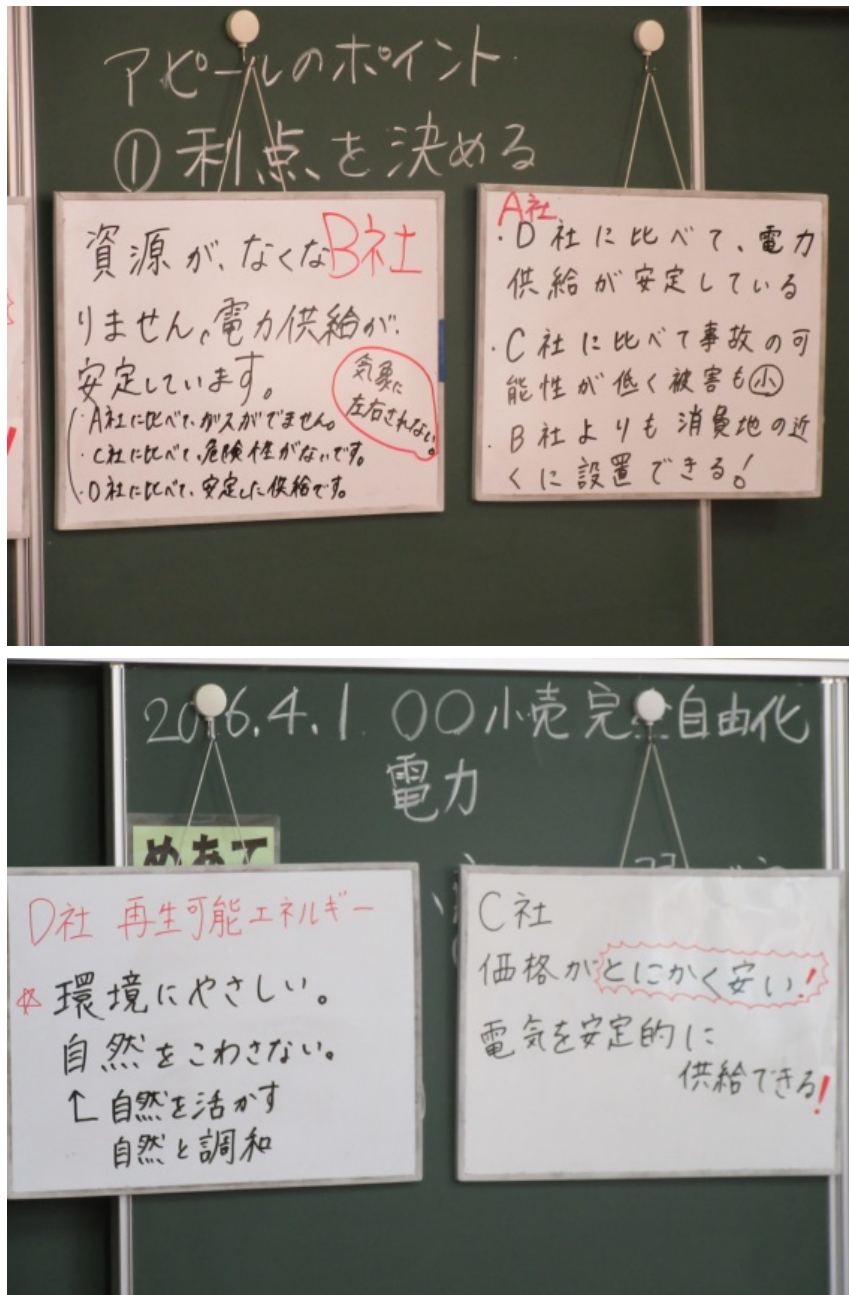 アピールのポイント
①利点を決める
B社
資源が、なくな
りません。電力供給が、
安定しています。
気象に
左右されない。
・A社に比べて、ガスがでません。
・C社に比べて、危険性がないです。
・D社に比べて、安定した供給です。
A社
・D社に比べて、電力
供給が安定している
・C社に比べて事故の可
能性が低く被害も小
・B社よりも消費地の近
くに設置できる!
2016.4.1.〇〇小売完全自由化
電力
めあて
D社 再生可能エネルギー
☆環境にやさしい。
自然をこわさない。
↑自然を活かす
自然と調和
C社
価格がとにかく安い!
電気を安定的に
供給できる!